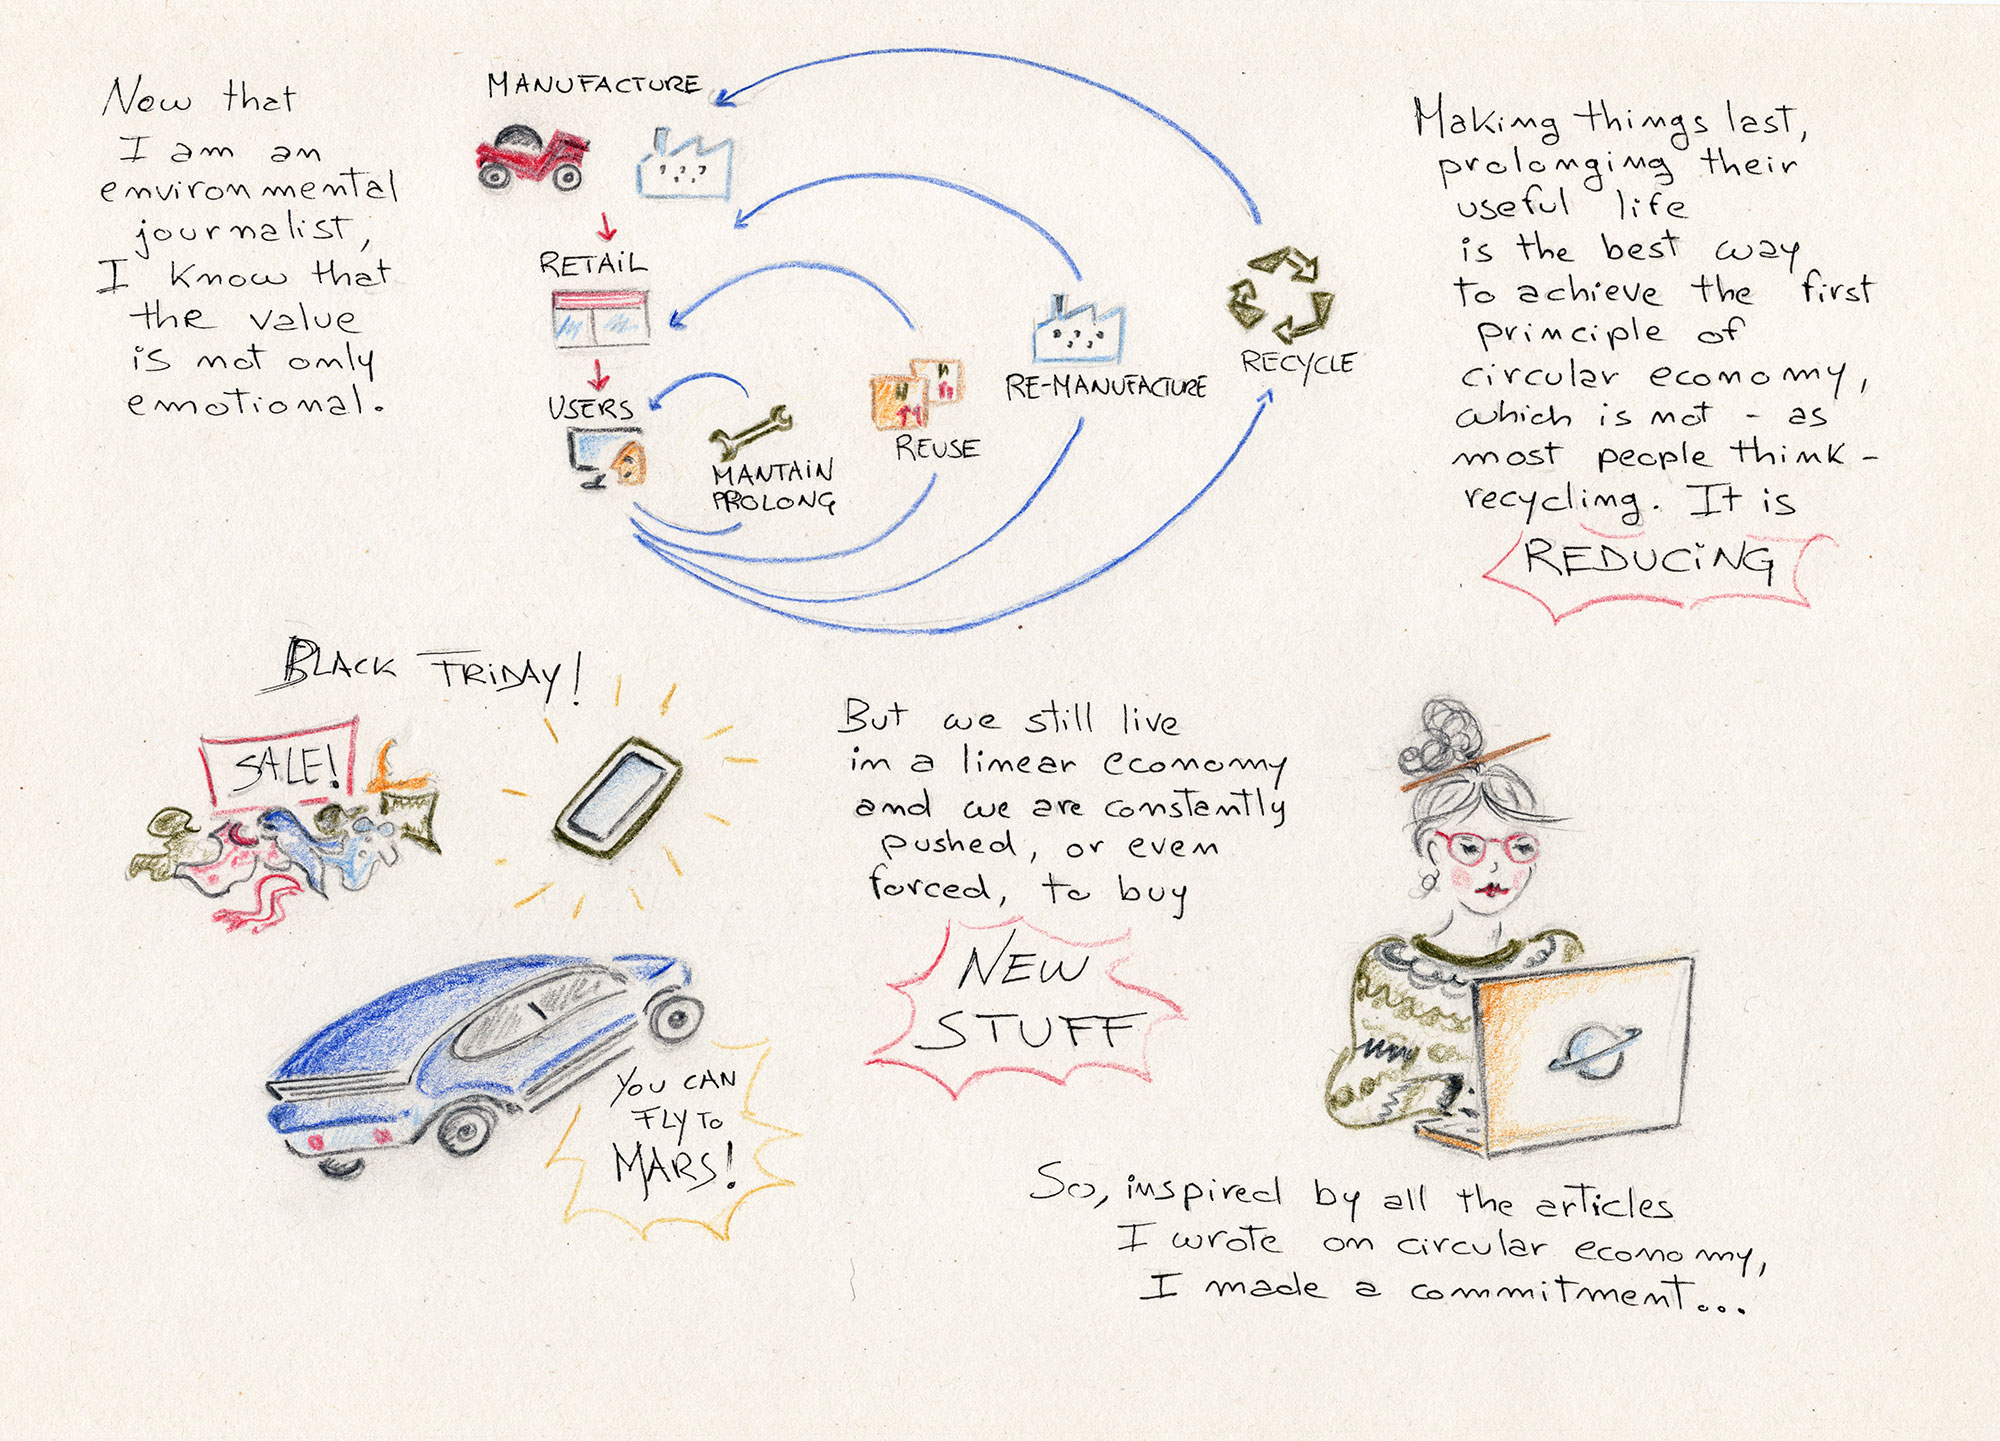 Now that
I am an
environmental
journalist,
I know that
the value
is not only
emotional.
MANUFACTURE
RETAIL
USERS
MANTAIN
PROLONG
REUSE
RE-MANUFACTURE
RECYCLE
Making things last,
prolonging their
useful life
is the best way
to achieve the first
principle of
circular economy,
which is not - as
most people think -
recycling. It is
REDUCING
BLACK FRIDAY!
SALE!
YOU CAN
FLY TO
MARS!
But we still live
in a linear economy
and we are constantly
pushed, or even
forced, to buy
NEW
STUFF
So, inspired by all the articles
I wrote on circular economy,
I made a commitment...